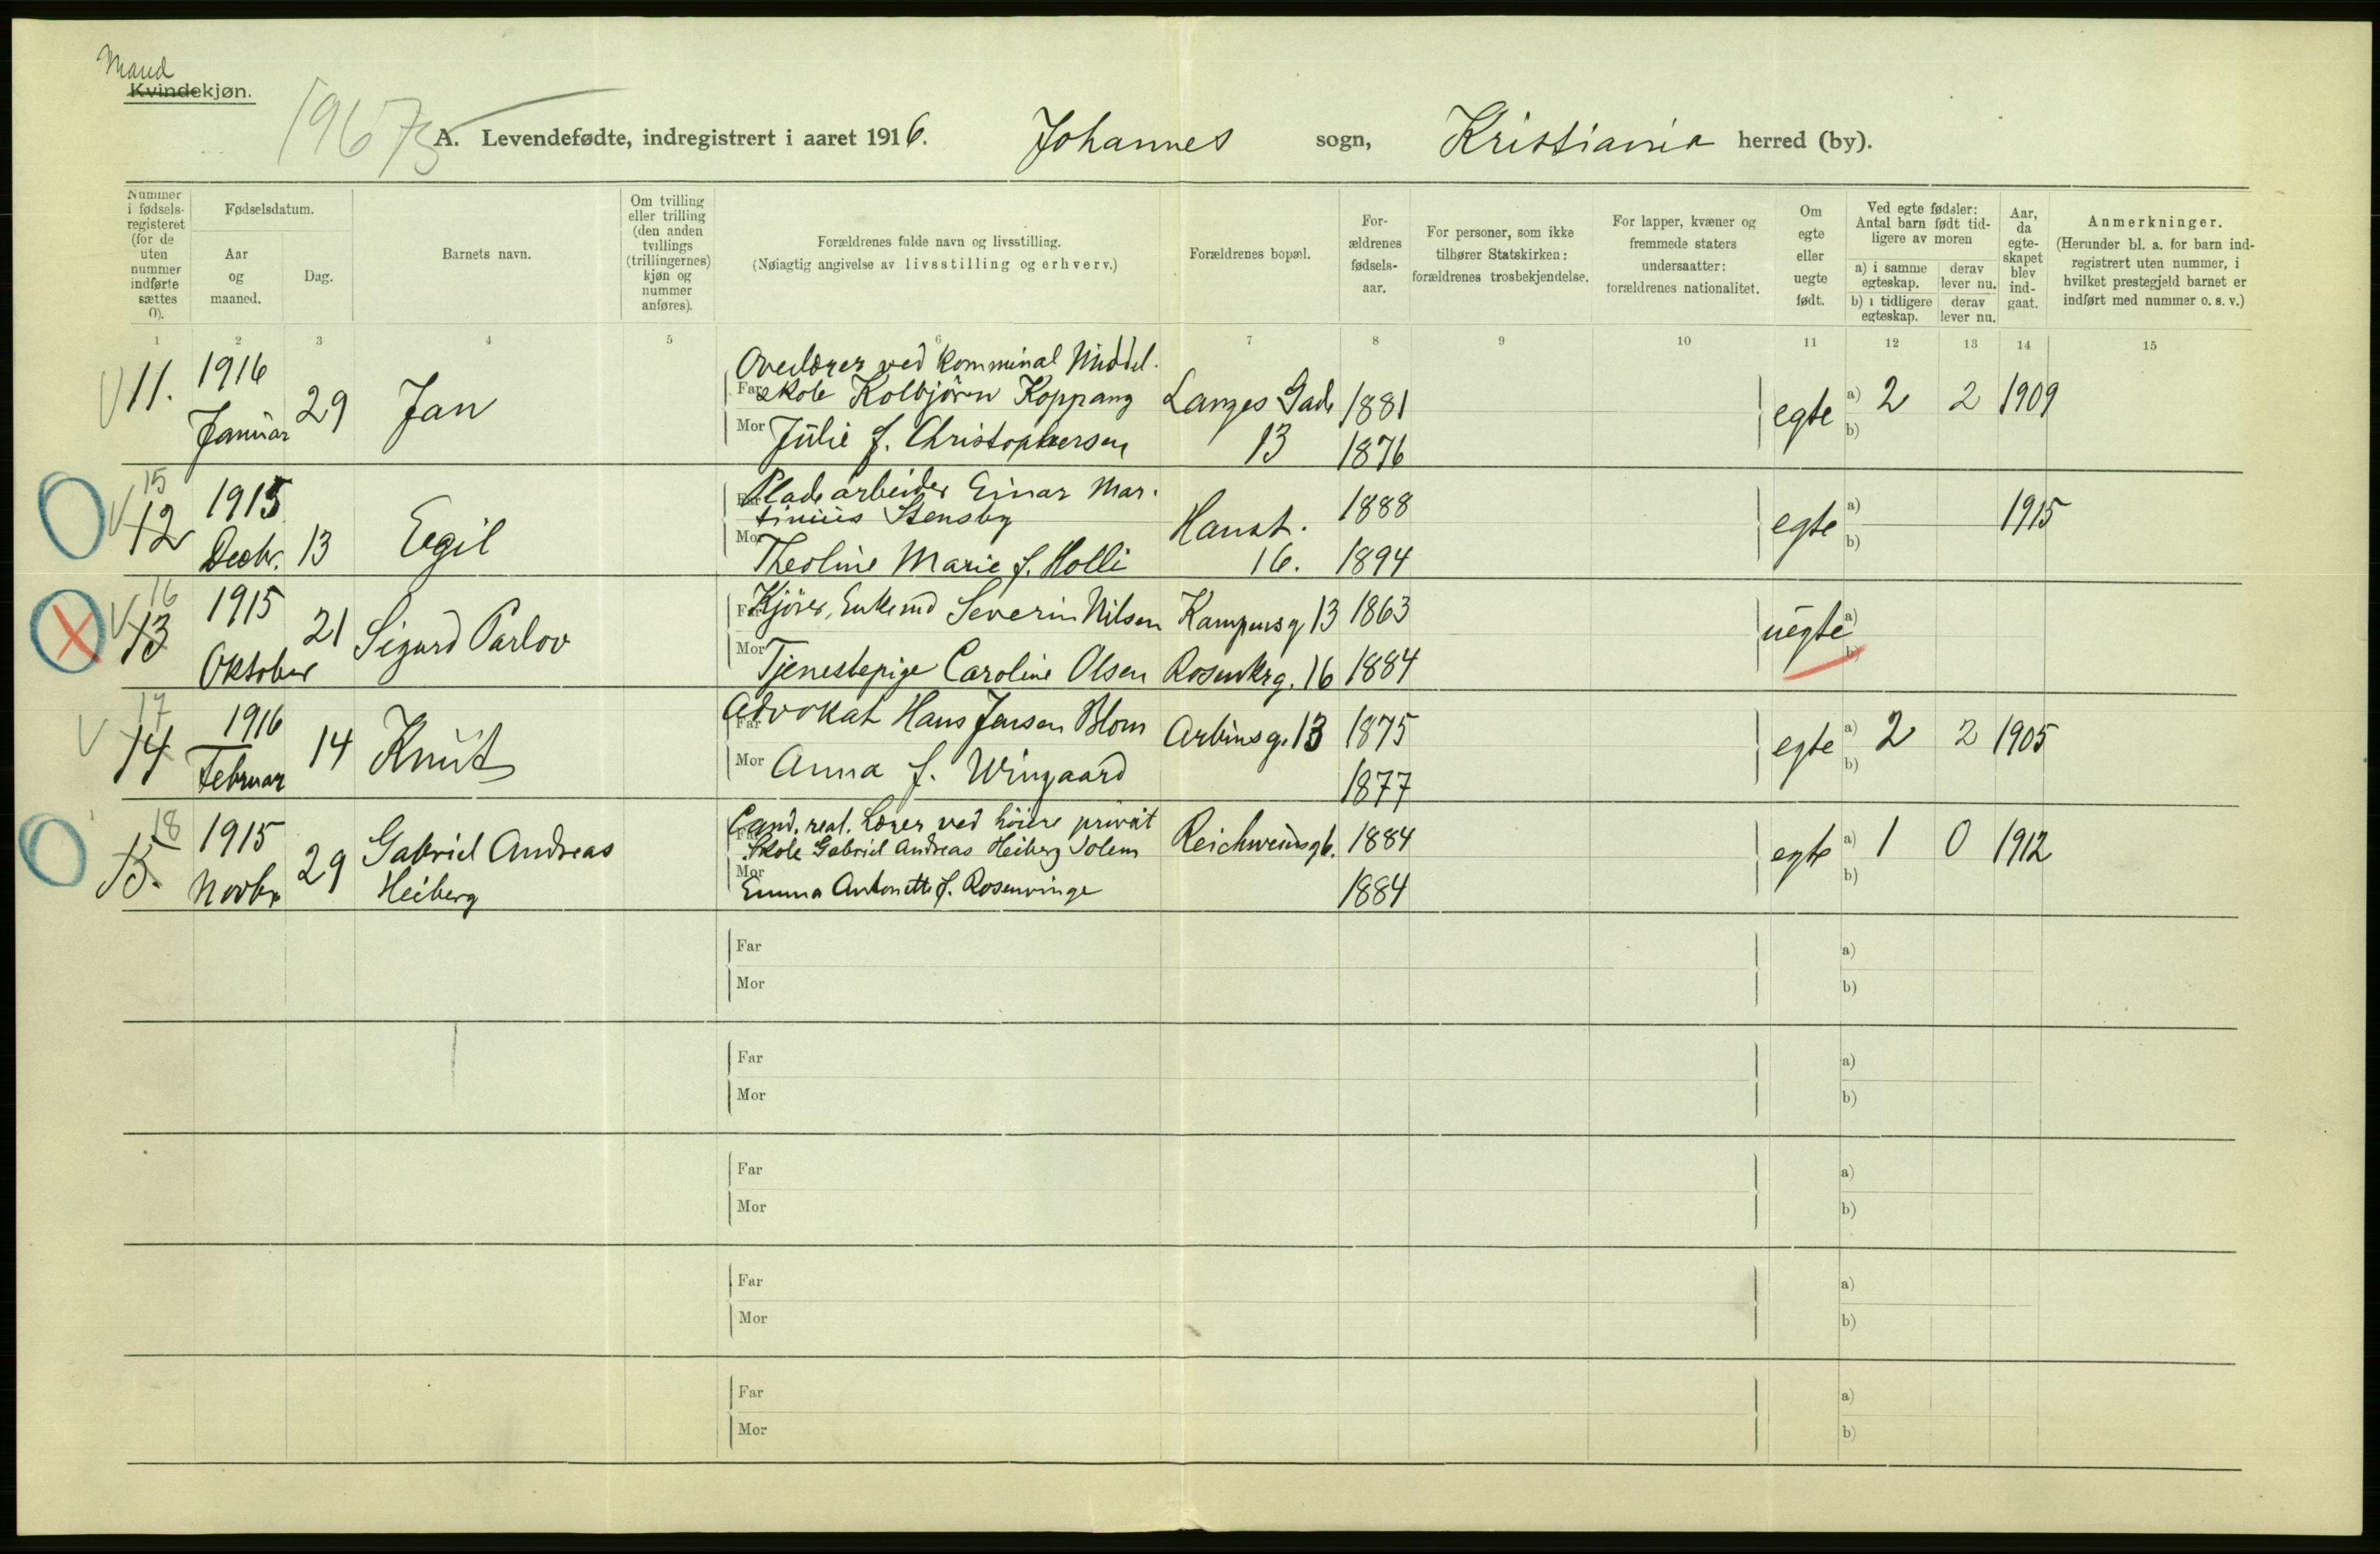 Mand
Kvindekjøn.
19675
A. Levendefødte, indregistrert i aaret 1916. Johannes sogn, Kristiania herred (by).
Nummer i fødsels-registeret (for de uten nummer indførte sættes 0).
Fødselsdatum.
Aar og maaned.
Dag.
Barnets navn.
Om tvilling eller trilling (den anden tvillings (trillingernes) kjøn og nummer anføres).
Forældrenes fulde navn og livsstilling.
(Nøiagtig angivelse av livsstilling og erhverv.)
Forældrenes bopæl.
For-ældrenes fødsels-aar.
For personer, som ikke tilhører Statskirken: forældrenes trosbekjendelse.
For lapper, kvæner og fremmede staters undersaatter: forældrenes nationalitet.
Om egte eller uegte født.
Ved egte fødsler: Antal barn født tid-ligere av moren
a) i samme egteskap. derav lever nu.
b) i tidligere egteskap. derav lever nu.
Aar, da egte-skapet blev ind-gaat.
Anmerkninger.
(Herunder bl. a. for barn ind-registrert uten nummer, i hvilket prestegjeld barnet er indført med nummer o. s. v.)
1 2 3 4 5 6 7 8 9 10 11 12 13 14 15
11. 1916 Januar 29 Jan
Overlærer ved kommunal Middel-
Far skole Kolbjörn Koppang Langes Gade 1881
Mor Julie f. Christophersen 13 1876
egte a) 2 2 1909
b)
15
12 1915 Decbr. 13 Egil
Far Pladearbeider Einar Mar-
tinius Stensby Haust. 1888
Mor Theoline Marie f. Holli 16. 1894
egte a) 1915
b)
16
13 1915 Oktober 21 Sigurd Parlov
Far Kjörer, Enkemd Severin Nilsen Kampensg 13 1863
Mor Tjenestepige Caroline Olsen Rosenkrg. 16 1884
uegte a)
b)
17
14 1916 Februar 14 Knut
Far Advokat Hans Jensen Blom Arbinsg. 13 1875
Mor Anna f. Wingaard 1877
egte a) 2 2 1905
b)
18
15. 1915 Novbr 29 Gabriel Andreas Heiberg
Far Cand. real. Lærer ved höiere privat
Skole Gabriel Andreas Heiberg Solem Reichweinsg 6. 1884
Mor Emma Antonette f. Rosenvinge 1884
egte a) 1 0 1912
b)
Far a)
Mor b)
Far a)
Mor b)
Far a)
Mor b)
Far a)
Mor b)
Far a)
Mor b)